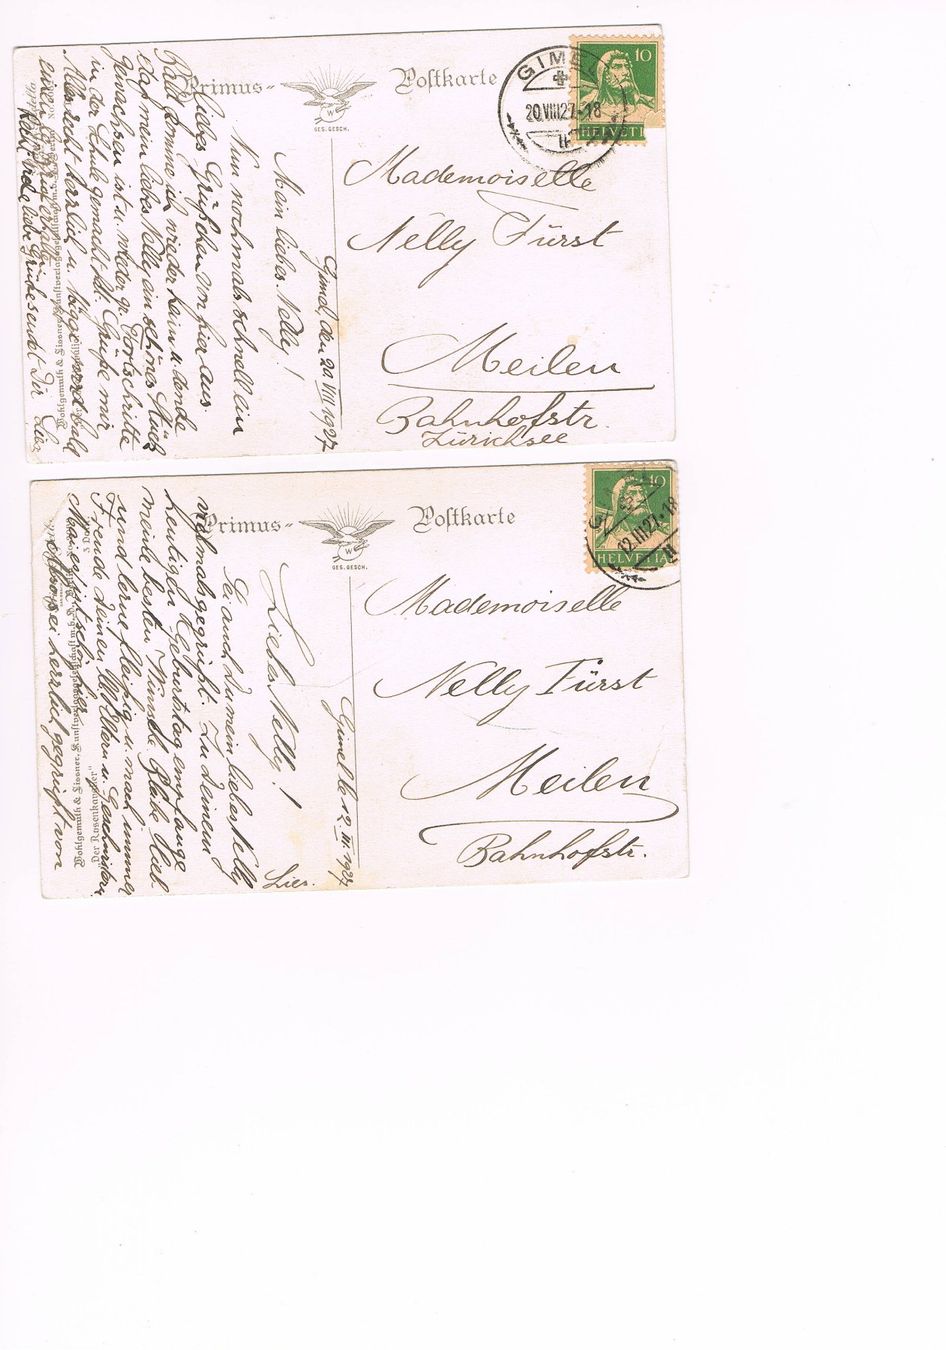 Primus-
Postkarte
GES. GESCH.
GIMEL
20.VIII.27-18
10
HELVETI
Mademoiselle
Nelly Fürst
Meilen
Bahnhofstr.
Zürichsee
Gimel, den 20. VIII 1927
Mein liebes Nelly!
Nun nochmals schnell ein
liebes Grüßchen von hier aus.
Bald komme ich wieder heim u. denke
daß mein liebes Nelly ein schönes Stück
gewachsen ist u. wieder gr. Fortschritte
in der Schule gemacht hat. Grüße mir
Alles recht herzlich u.
liebe Grüße sendet Dir
Primus-
Postkarte
GES. GESCH.
12.III.27-18
10
HELVETIA
Mademoiselle
Nelly Fürst
Meilen
Bahnhofstr.
Gimel de 12. III. 1927
Liebes Nelly!
Sei auch du mein liebes Nelly
vielmals gegrüßt. Zu deinem
heutigen Geburtstag empfange
meine besten Wünsche. Bleibe lieb
und lerne fleißig u. mach immer
Freude deinen lb. Eltern u. Geschwistern
sei herzlich gegrüßt von
Wohlgemuth & Lissner, Kunstverlagsgesellschaft
„Der Rosenkavalier"